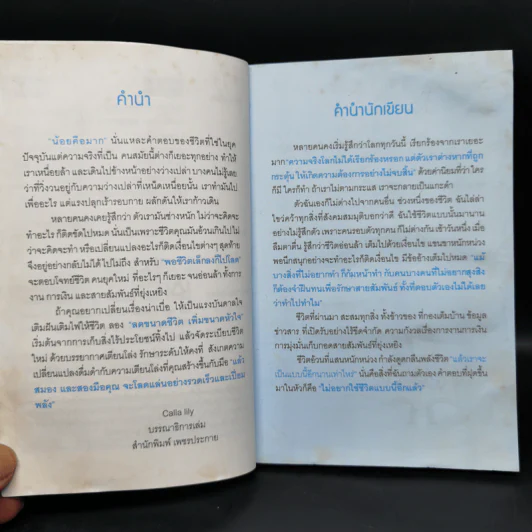 คำนำ
"น้อยคือมาก" นั่นแหละคำตอบของชีวิตที่ใช่ในยุค
ปัจจุบันแต่ความจริงที่เป็น คนสมัยนี้ต่างก็เยอะทุกอย่าง ทำให้
เราเหนื่อยล้า และเดินไปข้างหน้าอย่างว่างเปล่า บางคนไม่รู้เลย
ว่าที่วิ่งวนอยู่กับความว่างเปล่าที่เหน็ดเหนื่อยนั้น เราทำมันไป
เพื่ออะไร แต่แรงปลุกเร้ารอบกาย ผลักดันให้เราก้าวเดิน
หลายคนคงเคยรู้สึกว่า ตัวเรามันช่างหนัก ไม่ว่าจะคิดจะ
ทำอะไร ก็ติดขัดไปหมด นั่นเป็นเพราะชีวิตคุณมันอ้วนเกินไป ไม่
ว่าจะคิดจะทำ หรือเปลี่ยนแปลงอะไรก็ติดเงื่อนไขต่างๆ สุดท้าย
จึงอยู่อย่างกลับไม่ได้ไปไม่ถึง สำหรับ "พอชีวิตเล็กลงก็ไปโลด"
จะตอบโจทย์ชีวิต คนยุคใหม่ ที่อะไรๆ ก็เยอะ จนอ่อนล้า ทั้งการ
งาน การเงิน และสายสัมพันธ์ที่ยุ่งเหยิง
ถ้าคุณอยากเปลี่ยนเรื่องน่าเบื่อ ให้เป็นแรงบันดาลใจ
เติมฝันเติมไฟให้ชีวิต ลอง "ลดขนาดชีวิต เพิ่มขนาดหัวใจ"
เริ่มต้นจากการเก็บสิ่งไร้ประโยชน์ทิ้งไป แล้วจัดระเบียบชีวิต
ใหม่ ด้วยบรรยากาศเตียนโล่ง รักษาระดับให้คงที่ สังเกตความ
เปลี่ยนแปลงดื่มด่ำกับความเตียนโล่งที่คุณสร้างขึ้นกับมือ "แล้ว
สมอง และสองมือคุณ จะโลดแล่นอย่างรวดเร็วและเปี่ยม
พลัง"
Calla lily
บรรณาธิการเล่ม
สำนักพิมพ์ เพชรประกาย
คำนำนักเขียน
หลายคนคงเริ่มรู้สึกว่าโลกทุกวันนี้ เรียกร้องจากเราเยอะ
มาก "ความจริงโลกไม่ได้เรียกร้องหรอก แต่ตัวเราต่างหากที่ถูก
กระตุ้น ให้เกิดความต้องการอย่างไม่จบสิ้น" ด้วยค่านิยมที่ว่า ใคร
ก็มี ใครก็ทำ ถ้าเราไม่ตามกระแส เราจะกลายเป็นแกะดำ
ตัวฉันเองก็ไม่ต่างไปจากคนอื่น ช่วงหนึ่งของชีวิต ฉันไล่ล่า
ไขว่คว้าทุกสิ่งที่สังคมสมมุติบอกว่าดี ฉันใช้ชีวิตแบบนั้นมานาน
อย่างไม่รู้สึกตัว เพราะคนรอบตัวทุกคน ก็ไม่ต่างกัน เช้าวันหนึ่ง เมื่อ
ลืมตาตื่น รู้สึกชีวิตอ่อนล้า เต็มไปด้วยเงื่อนไข แขนขาหนักหน่วง
พอนึกสนุกอย่างจะทำอะไรก็ติดเงื่อนไข มีข้ออ้างเต็มไปหมด "แม้
บางสิ่งที่ไม่อยากทำ ก็ก้มหน้าทำ กับคนบางคนที่ไม่อยากสุงสิง
ก็ต้องจำฝืนทนเพื่อรักษาสายสัมพันธ์ ทั้งที่ตอบตัวเองไม่ได้เลย
ว่าทำไปทำไม"
ชีวิตที่ผ่านมา สะสมทุกสิ่ง ทั้งข้าวของ ที่กองเต็มบ้าน ข้อมูล
ข่าวสาร ที่เปิดรับอย่างไร้ขีดจำกัด ความกังวลเรื่องการงานการเงิน
การมุ่งมั่นเก็บกอดสายสัมพันธ์ที่ยุ่งเหยิง
ชีวิตอ้วนที่แสนหนักหน่วง กำลังดูดกลืนพลังชีวิต "แล้วเราจะ
เป็นแบบนี้อีกนานเท่าไหร่" นั่นคือสิ่งที่ฉันถามตัวเอง คำตอบที่ผุดขึ้น
มาในหัวก็คือ "ไม่อยากใช้ชีวิตแบบนี้อีกแล้ว"